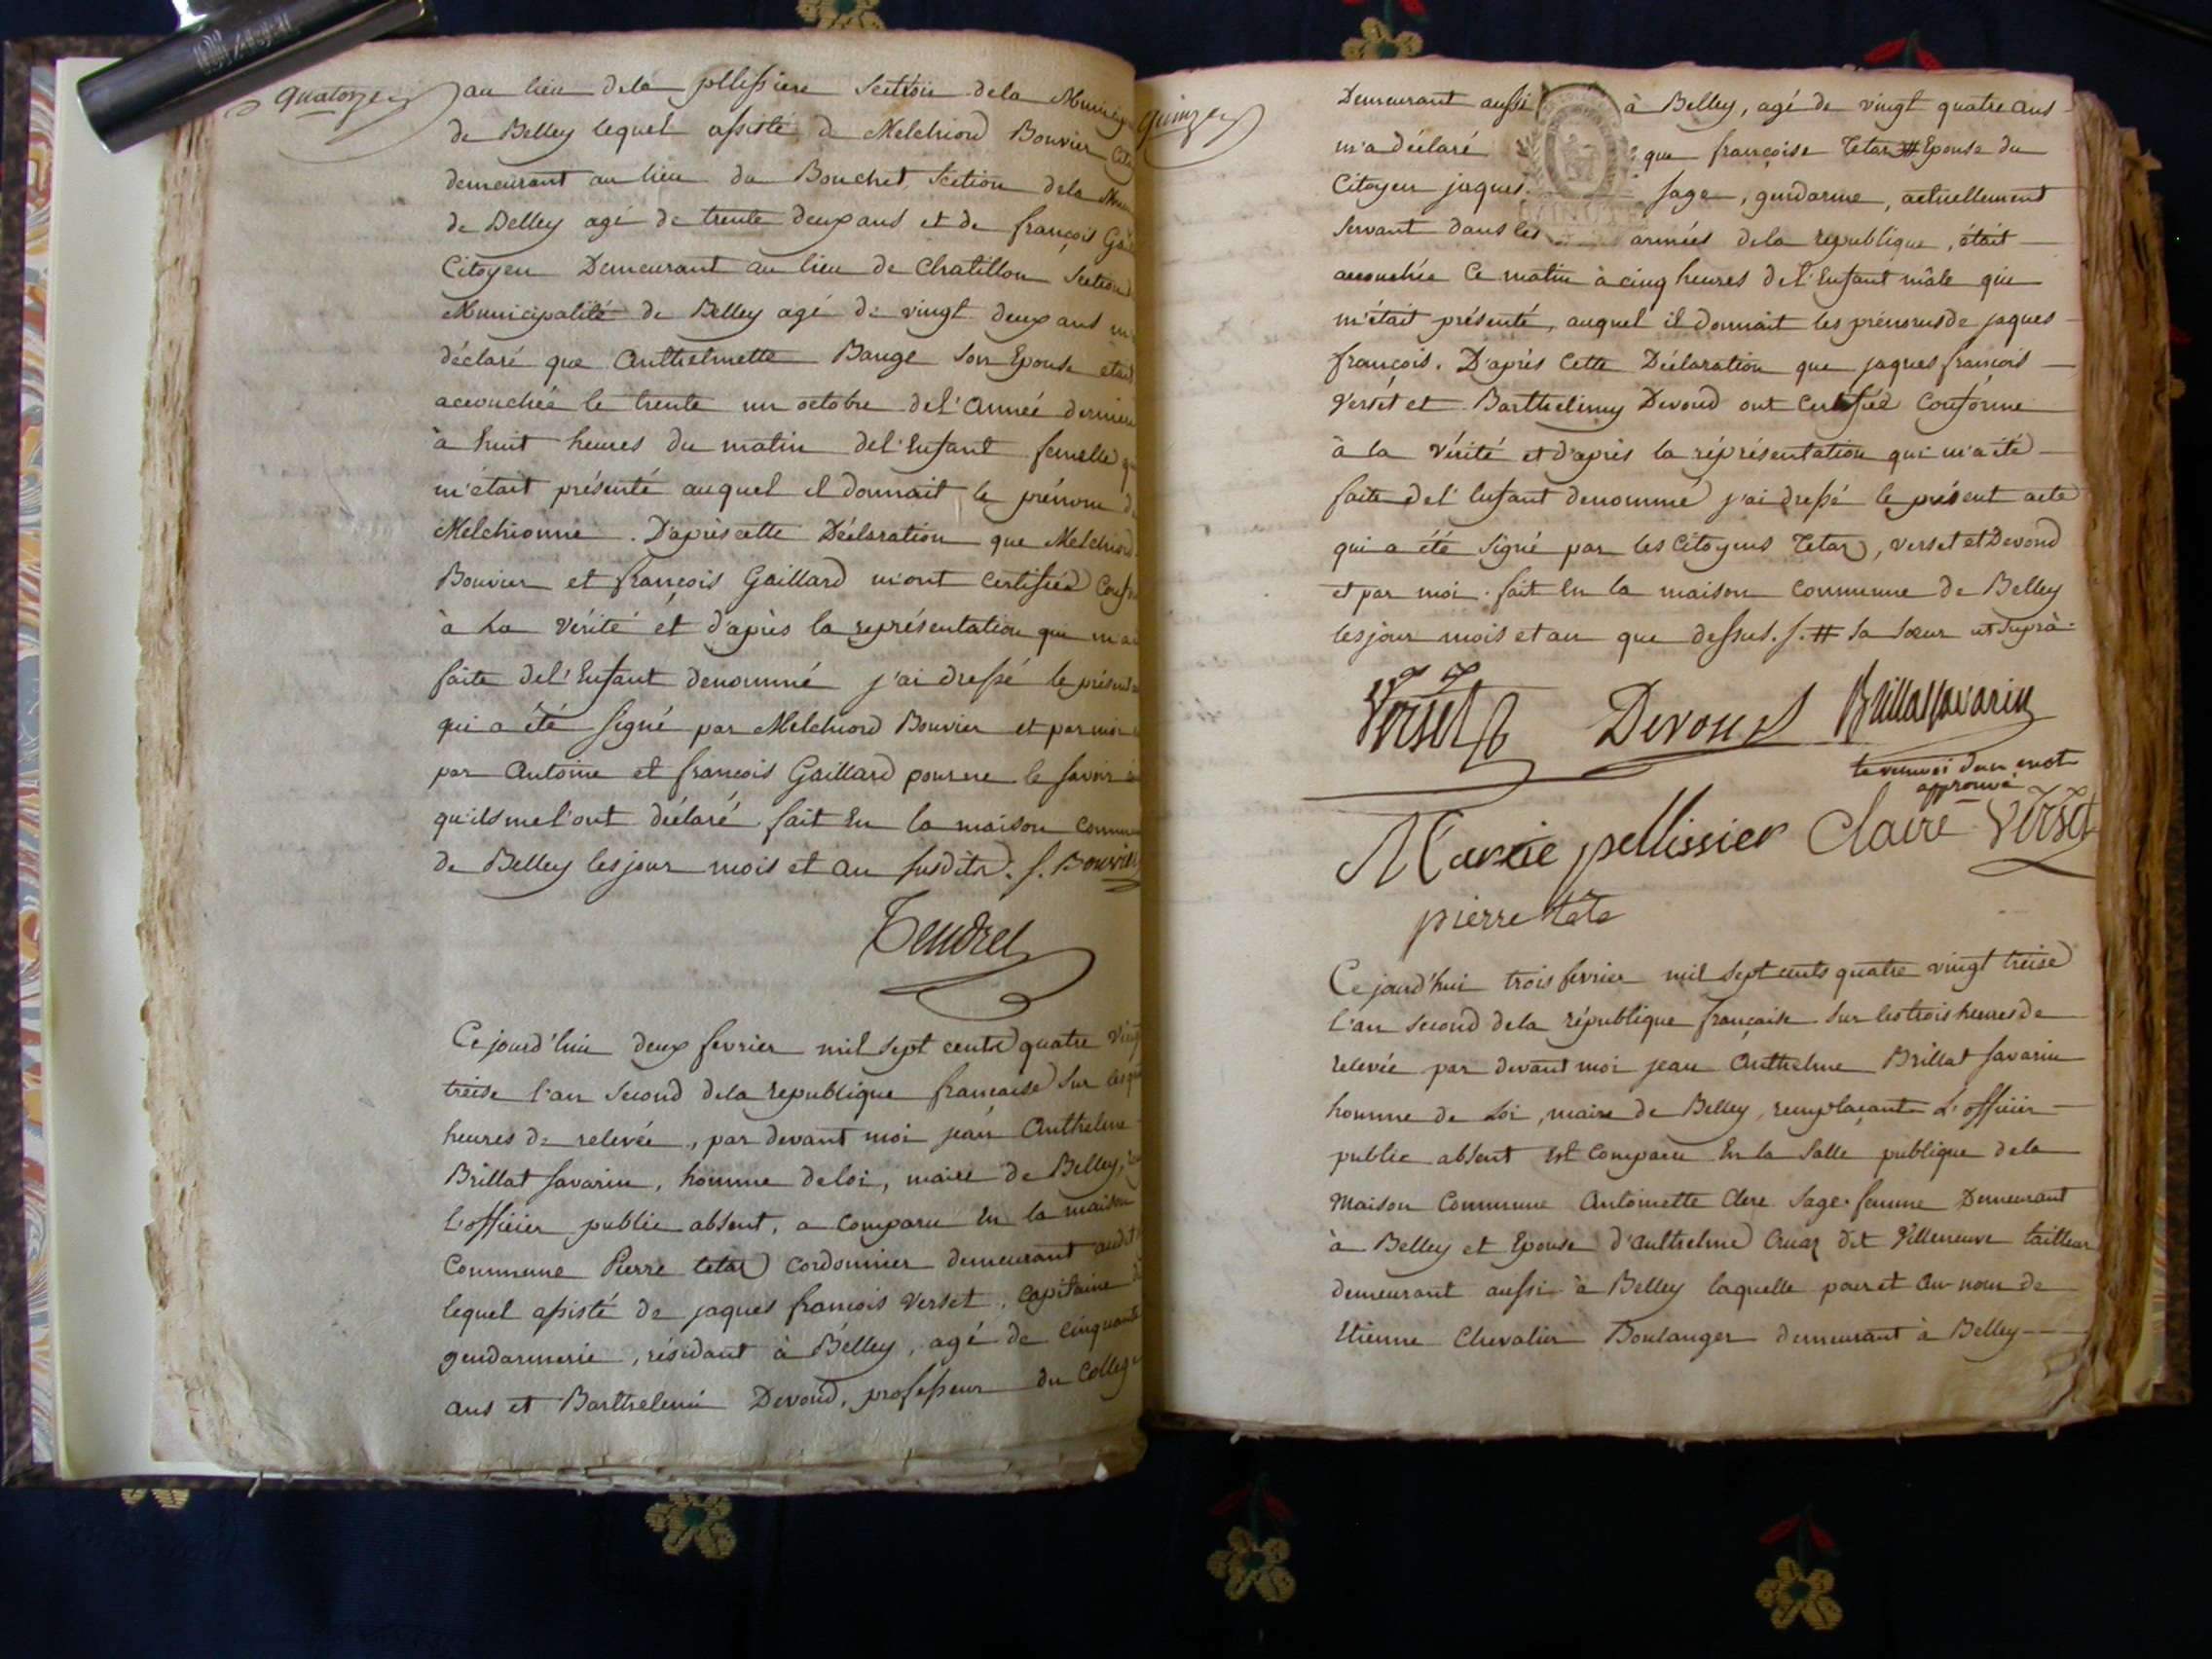 quatorze
au lieu dela pllissiere Section dela
de Belley lequel assisté de Melchiord Bouvier
demeurant au lieu du Bouchet, Section dela
de Belley agé de trente deux ans et de françois
Citoyen Demeurant au lieu de Chatillon Section
Municipalité de Belley agé de vingt deux ans
déclaré que Anthelmette Bauge son Epouse etait
accouchée le trente un octobre del'Année
à huit heures du matin del'Enfant femelle
m'était présenté auquel il donnait le prénom
Melchionne. D'après cette Déclaration que Melchiord
Bouvier et françois Gaillard m'ont Certifiéd
à La Vérité et d'après la représentation qui
faite del'Enfant denommé j'ai dressé le
qui a été signé par Melchiord Bouvier et par moi
par Antoine et françois Gaillard pour ne le savoir
qu'ils me l'ont déclaré. fait En la maison
de Belley les jour mois et an susdits. f. Bouvier
Tendret
Cejourd'hui deux fevrier mil sept cents quatre
treise l'an second dela republique francaise sur les
heures de relevée, par devant moi jean Anthelme
Brillat savarin, homme deloi, maire de Belley,
l'officier public absent, a comparu En la maison
Commune Pierre tetaz cordonnier demeurant
lequel assisté de jaques francois Verset, Capitaine
gendarmerie, résidant à Belley, agé de cinquante
ans et Barthelemi Devoud, professeur du College
quinze
Demeurant aussi à Belley, agé de vingt quatre ans
m'a déclaré que françoise Tetaz # Epouse du
Citoyen jaques sage, gendarme, actuellement
servant dans les armées dela republique, était
accouchée Ce matin à cinq heures del'Enfant mâle qui
m'était présenté, auquel il donnait les prénoms de jaques
françois. D'après Cette Déclaration que jaques francois
Verset et Barthelimy Devoud ont Certifiée Conforme
à la Vérité et d'après la réprésentation qui m'a été
faite del'Enfant denommé j'ai dressé le présent acte
qui a été signé par les Citoyens Tetaz, verset et Devoud
et par moi. fait En la maison Commune de Belley
les jour mois et an que dessus. f. # sa sœur ut suprà.
Verset Devoud Brillatsavarin
le renvoi d'un mot
approuvé
Marie pellissier Claire Verset
pierre teta
Cejourd'hui trois fevrier mil sept cents quatre vingt treise
l'an second dela république française sur les trois heures de
relevée par devant moi jean Anthelme Brillat savarin
homme de Loi, maire de Belley, remplaçant L'officier
public absent Est comparu En la salle publique dela
Maison Commune Antoinette Clerc Sage-femme Demeurant
à Belley et Epouse d'Anthelme Cruaz dit Villeneuve tailleur
demeurant aussi à Belley laquelle pour et Au nom de
Etienne Chevalier Boulanger demeurant à Belley